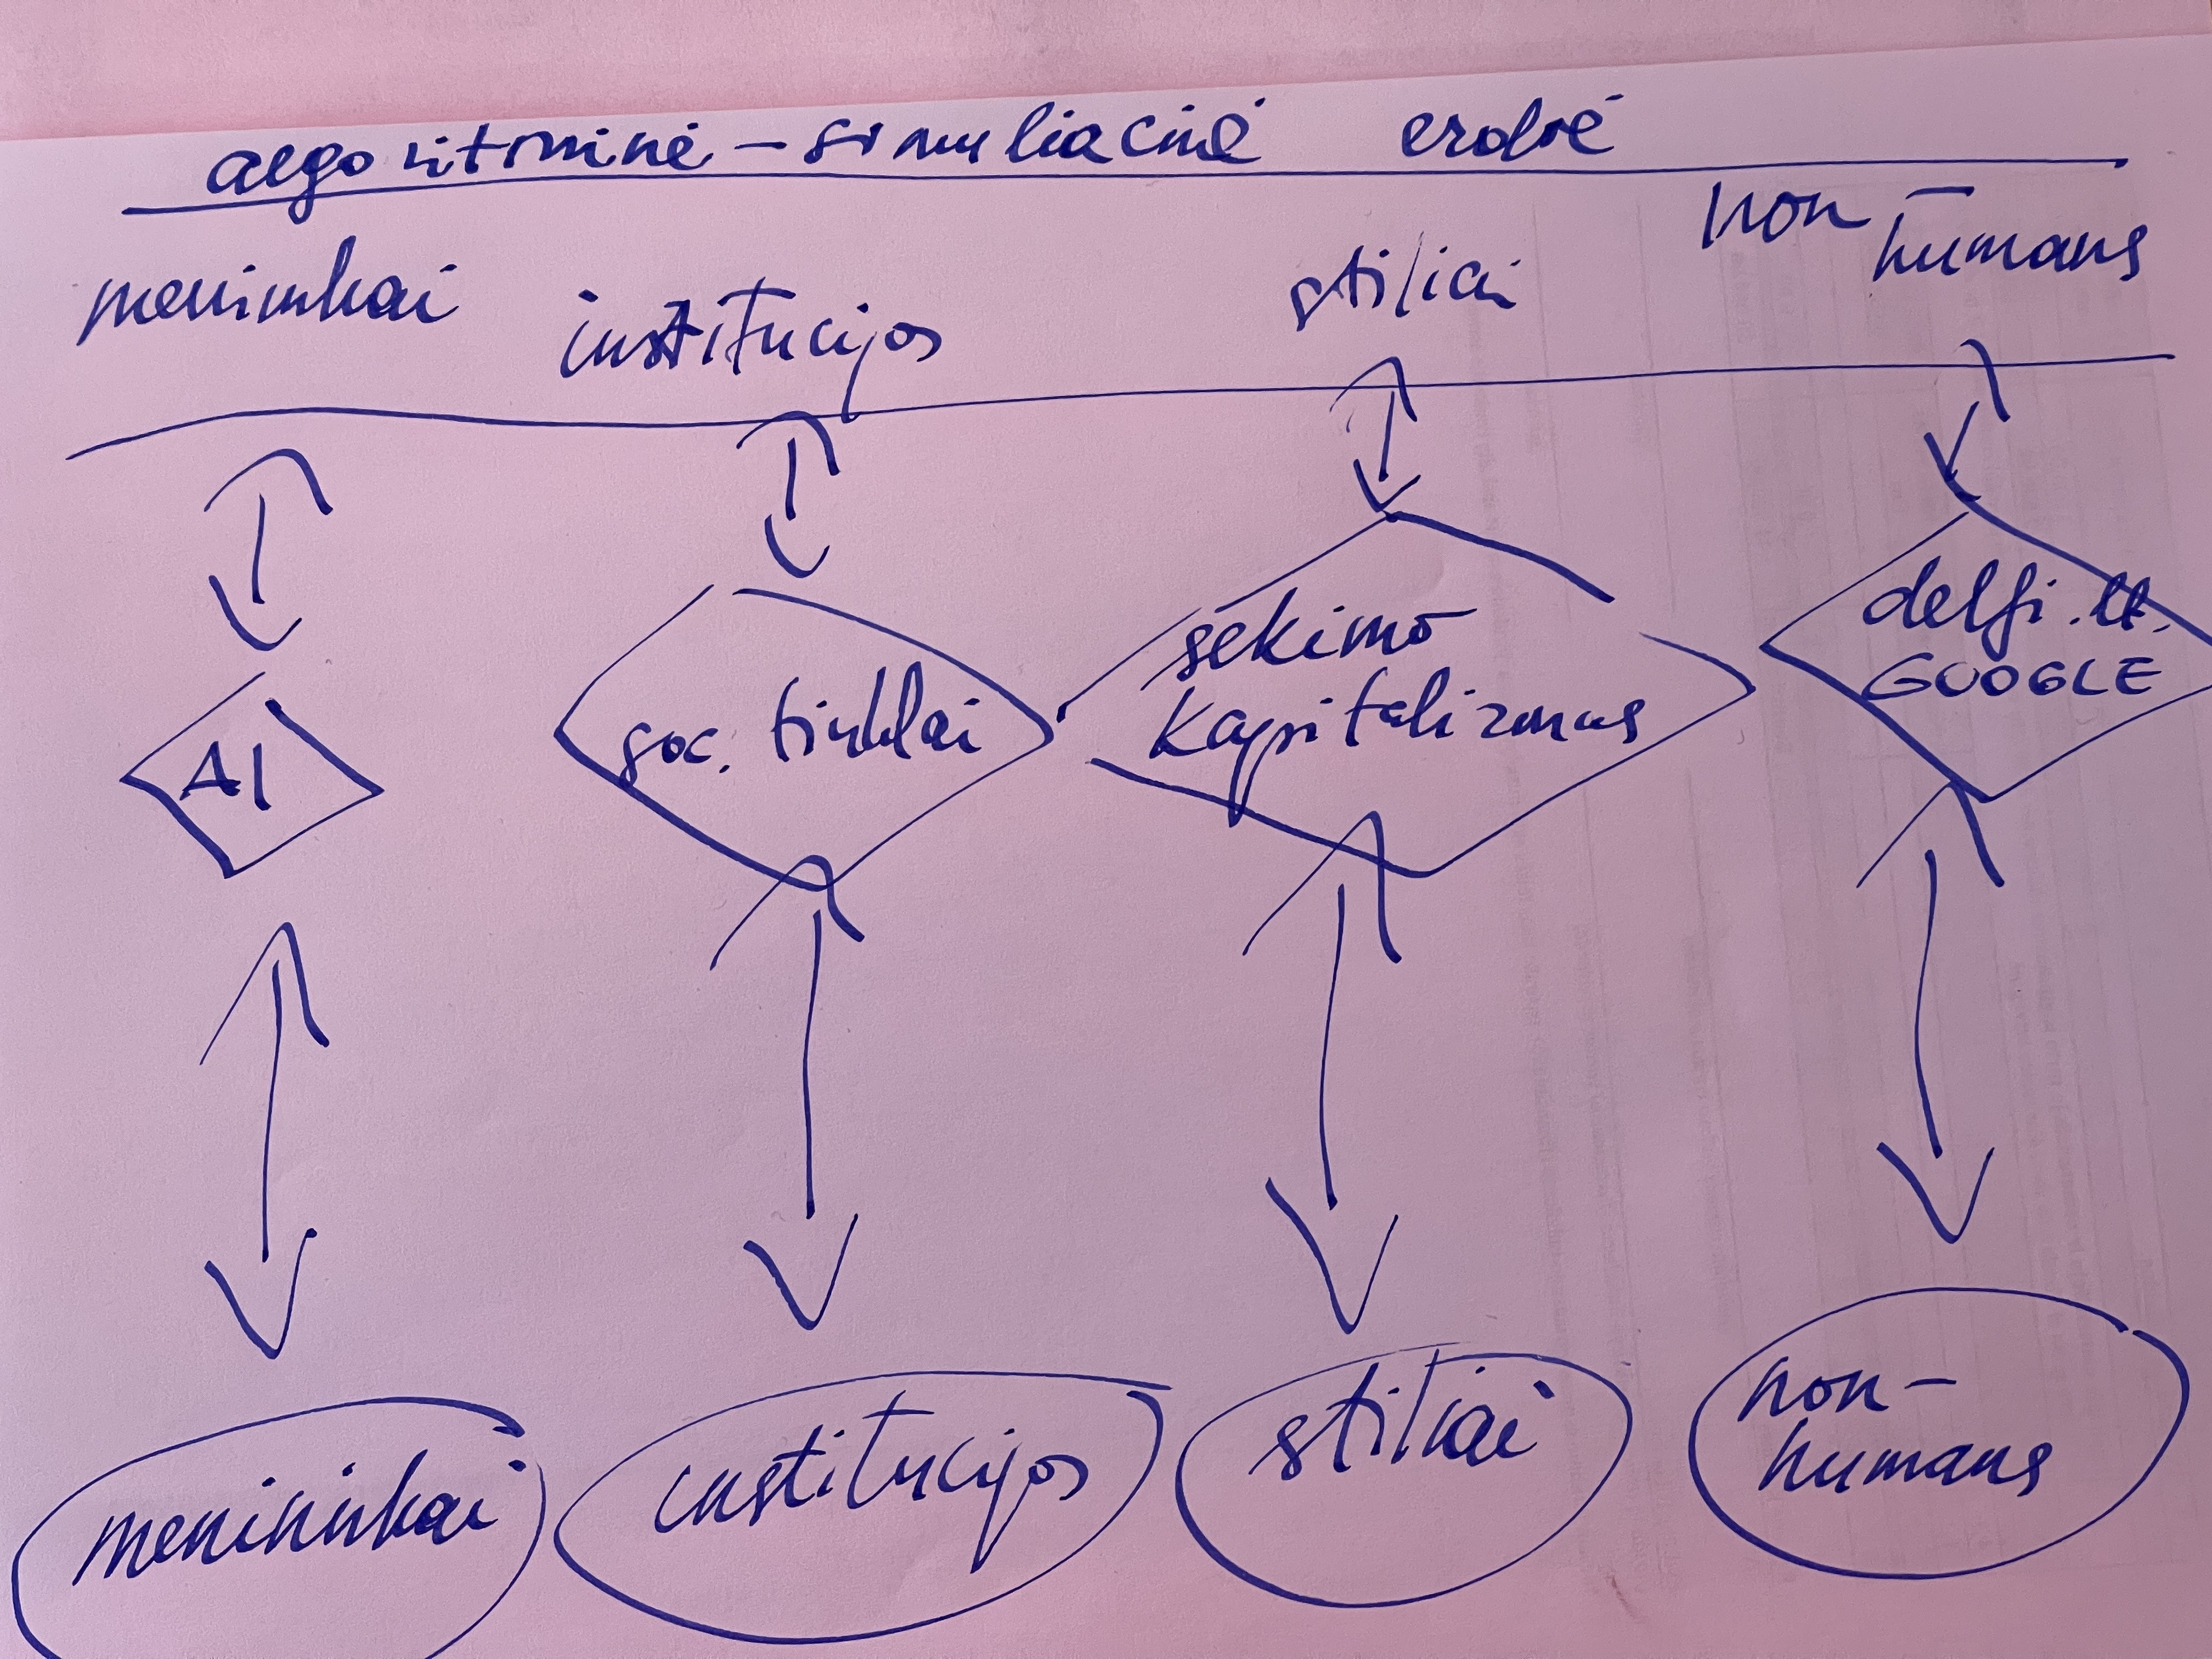 algoritminė – simuliacinė erdvė
menininkai institucijos stiliai non-
humans
AI
soc. tinklai
sekimo
kapitalizmas
delfi.lt.
GOOGLE
menininkai
institucijos
stiliai
non-
humans